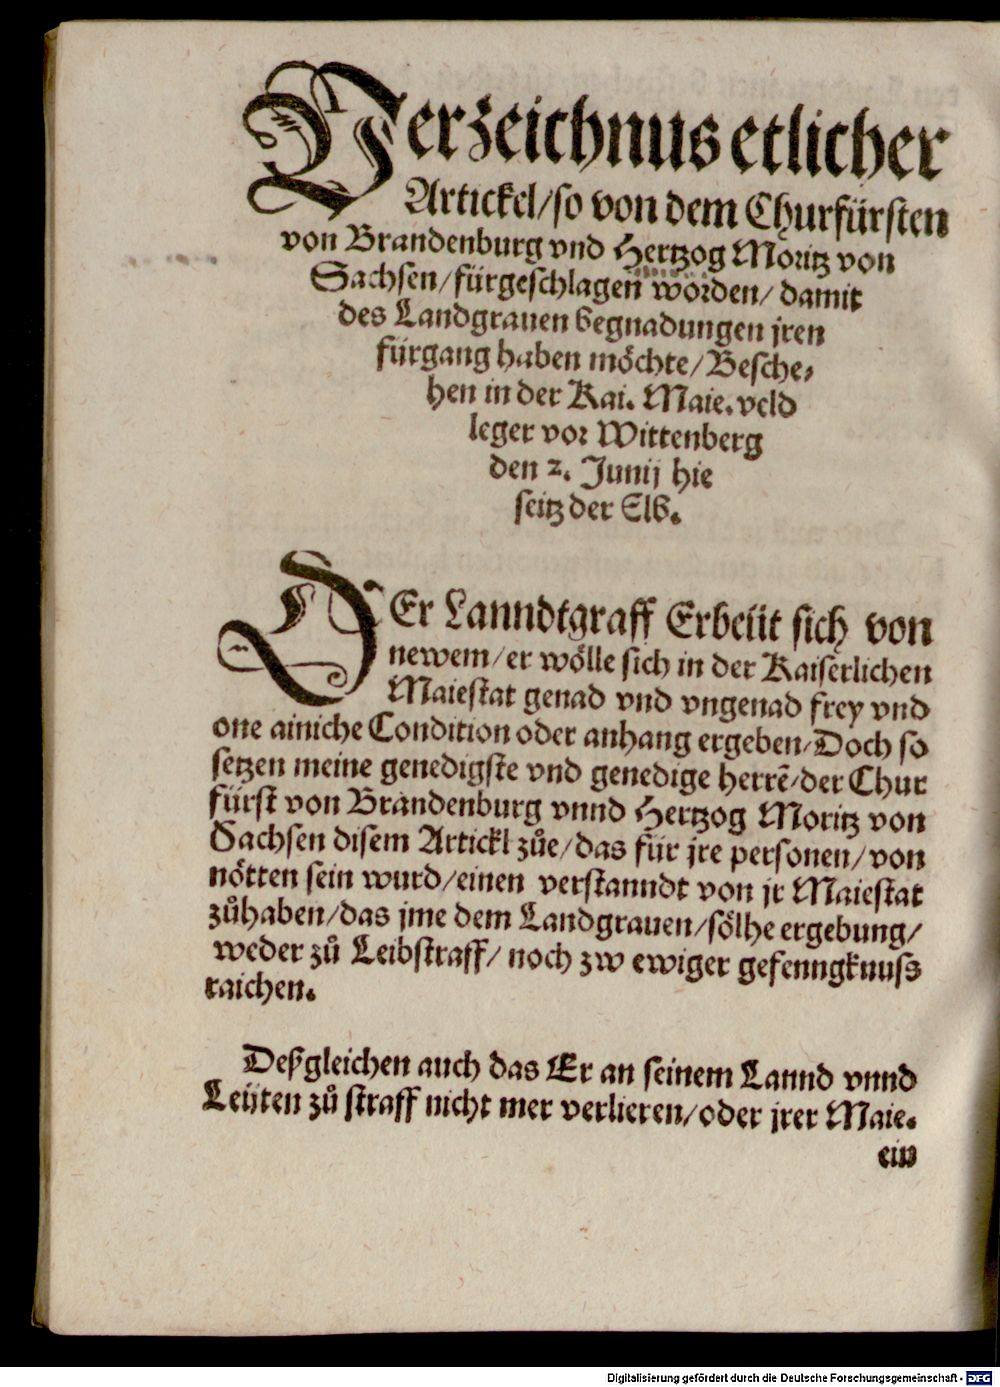 Verzeichnus etlicher
Artickel/so von dem Churfürsten
von Brandenburg vnd Hertzog Moritz von
Sachsen/fürgeschlagen wörden/damit
des Landgrauen begnadungen jren
fürgang haben möchte/Besche⸗
hen in der Kai. Maie. veld
leger vor Wittenberg
den 2. Junij hie
seitz der Elb.
DEr Lanndtgraff Erbeüt sich von
newem/er wölle sich in der Kaiserlichen
Maiestat genad vnd vngenad frey vnd
one ainiche Condition oder anhang ergeben/Doch so
setzen meine genedigste vnd genedige herrē/der Chur
fürst von Brandenburg vnnd Hertzog Moritz von
Sachsen disem Artickl zůe/das für jre personen/von
nötten sein wurd/einen verstanndt von jr Maiestat
zůhaben/das jme dem Landgrauen/sölhe ergebung/
weder zů Leibstraff/noch zw ewiger gefenngknusz
raichen.
Deßgleichen auch das Er an seinem Lannd vnnd
Leüten zů straff nicht mer verlieren/oder jrer Maie.
ein
Digitalisierung gefördert durch die Deutsche Forschungsgemeinschaft - DFG